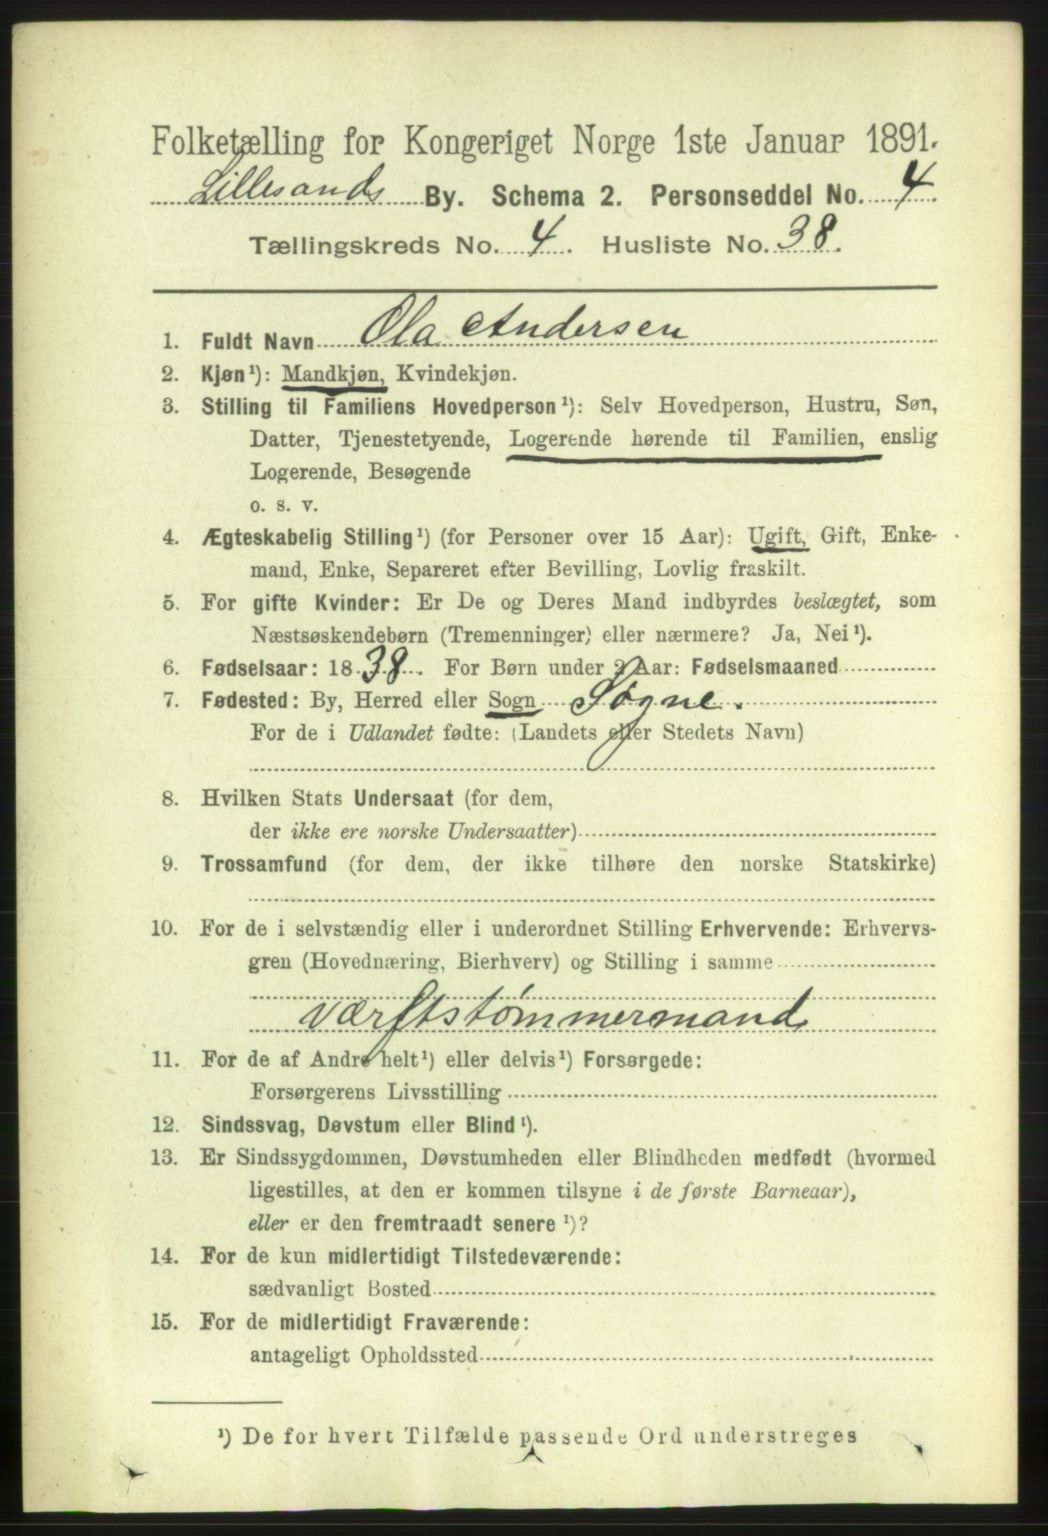 Folketælling for Kongeriget Norge 1ste Januar 1891.
Lillesands By. Schema 2. Personseddel No. 4.
Tællingskreds No. 4. Husliste No. 38.
1. Fuldt Navn Ola Andersen
2. Kjøn¹): Mandkjøn, Kvindekjøn.
3. Stilling til Familiens Hovedperson¹): Selv Hovedperson, Hustru, Søn,
Datter, Tjenestetyende, Logerende hørende til Familien, enslig
Logerende, Besøgende
o. s. v.
4. Ægteskabelig Stilling¹) (for Personer over 15 Aar): Ugift, Gift, Enke-
mand, Enke, Separeret efter Bevilling, Lovlig fraskilt.
5. For gifte Kvinder: Er De og Deres Mand indbyrdes beslægtet, som
Næstsøskendebørn (Tremenninger) eller nærmere? Ja, Nei¹).
6. Fødselsaar: 1838. For Børn under 2 Aar: Fødselsmaaned
7. Fødested: By, Herred eller Sogn Søgne.
For de i Udlandet fødte: (Landets eller Stedets Navn)
8. Hvilken Stats Undersaat (for dem,
der ikke ere norske Undersaatter)
9. Trossamfund (for dem, der ikke tilhøre den norske Statskirke)
10. For de i selvstændig eller i underordnet Stilling Erhvervende: Erhvervs-
gren (Hovednæring, Bierhverv) og Stilling i samme
værftstømmermand
11. For de af Andre helt¹) eller delvis¹) Forsørgede:
Forsørgerens Livsstilling
12. Sindssvag, Døvstum eller Blind¹).
13. Er Sindssygdommen, Døvstumheden eller Blindheden medfødt (hvormed
ligestilles, at den er kommen tilsyne i de første Barneaar),
eller er den fremtraadt senere¹)?
14. For de kun midlertidigt Tilstedeværende:
sædvanligt Bosted
15. For de midlertidigt Fraværende:
antageligt Opholdssted
¹) De for hvert Tilfælde passende Ord understreges